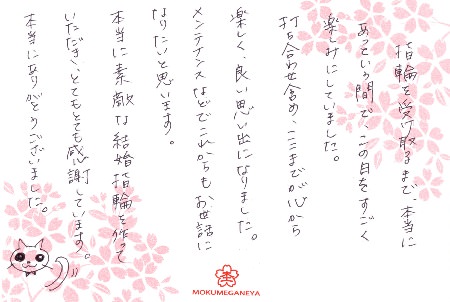 指輪を受け取るまで、本当に
あっという間で、この日をすごく
楽しみにしていました。
打ち合わせ含め、ここまでが心から
楽しく、良い思い出になりました。
メンテナンスなどでこれからもお世話に
なりたいと思います。
本当に素敵な結婚指輪を作って
いただき、とてもとても感謝しています。
本当にありがとうございました。
MOKUMEGANEYA